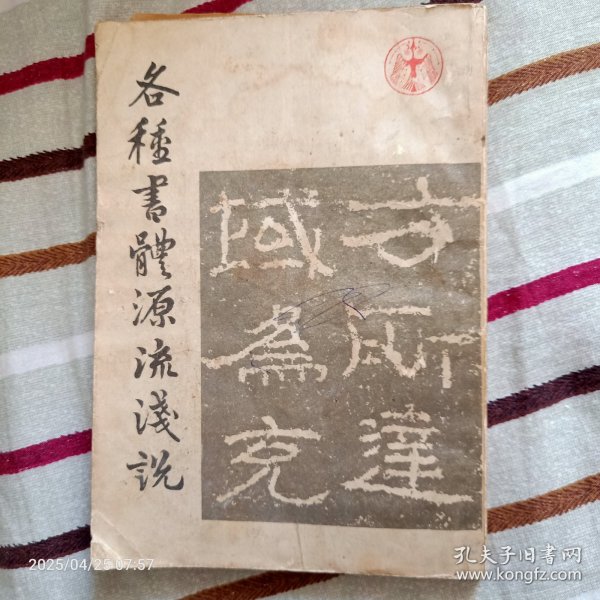 各種書體源流淺說
方所達
域為充
2025/04/25 07:57
孔夫子旧书网
www.kongfz.com